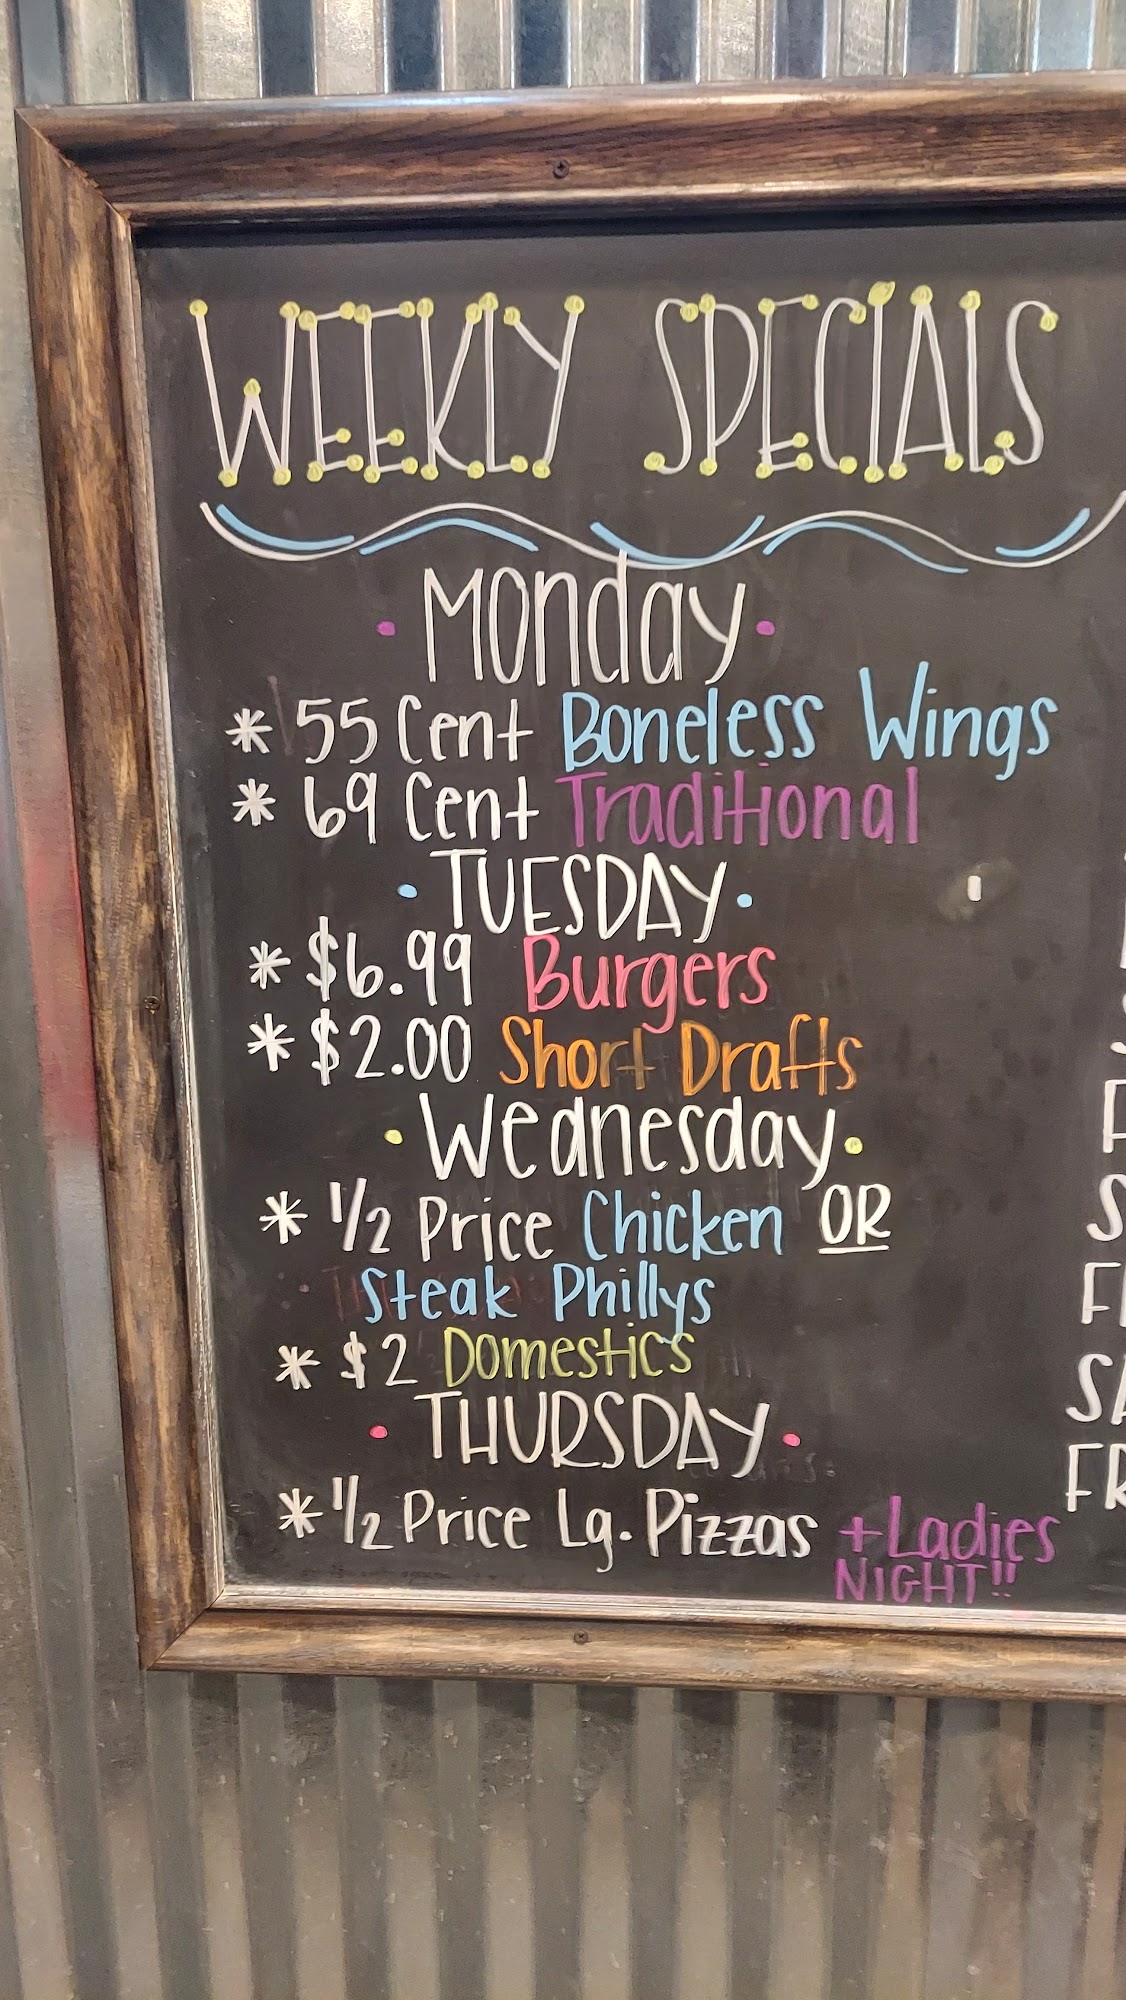 WEEKLY SPECIALS
Monday
* 55 Cent Boneless Wings
* 69 Cent Traditional
TUESDAY
* $6.99 Burgers
* $2.00 Short Drafts
Wednesday
* 1/2 Price Chicken OR
Steak Phillys
* $2 Domestics
THURSDAY
* 1/2 Price Lg. Pizzas + Ladies
NIGHT!!